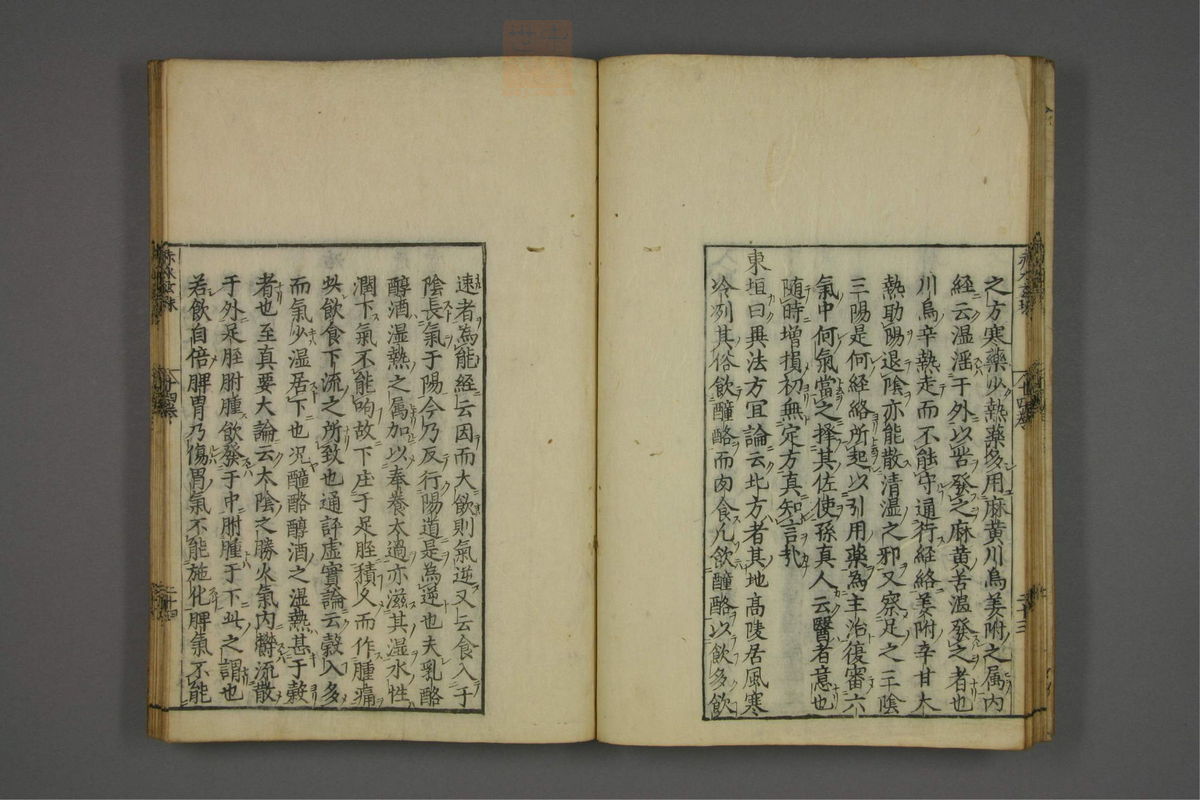 之方寒藥少熱藥多用麻黄川烏姜附之属内
経云湿淫于外以苦發之麻黄苦温發之者也
川烏辛熱走而不能守通行経絡姜附辛甘大
熱助陽退陰亦能散清湿之邪又察足之三陰
三陽是何経絡所起以引用藥為主治復審六
氣中何氣當之擇其佐使孫真人云醫者意也
随時增損初無定方真知言㢤
東垣曰異法方冝論云北方者其地髙陵居風寒
冷冽其俗飲醴酪而肉食凡飲醴酪以飲多飲
速者為能経云因而大飲則氣逆又云食入于
陰長氣于陽今乃反行陽道是為逆也夫乳酪
醇酒湿熱之属加以奉養太過亦滋其湿水性
潤下氣不能呴故下庄于足胻積久而作腫痛
此飲食下流之所致也通評虚實論云穀入多
而氣少湿居下也况醴酪醇酒之湿熱甚于穀
者也至真要大論云太陰之勝火氣内欝流散
于外足胻胕腫飲發于中胕腫于下此之謂也
若飲自倍脾胃乃傷胃氣不能施化脾氣不能
赤水玄珠
二十四
二十三